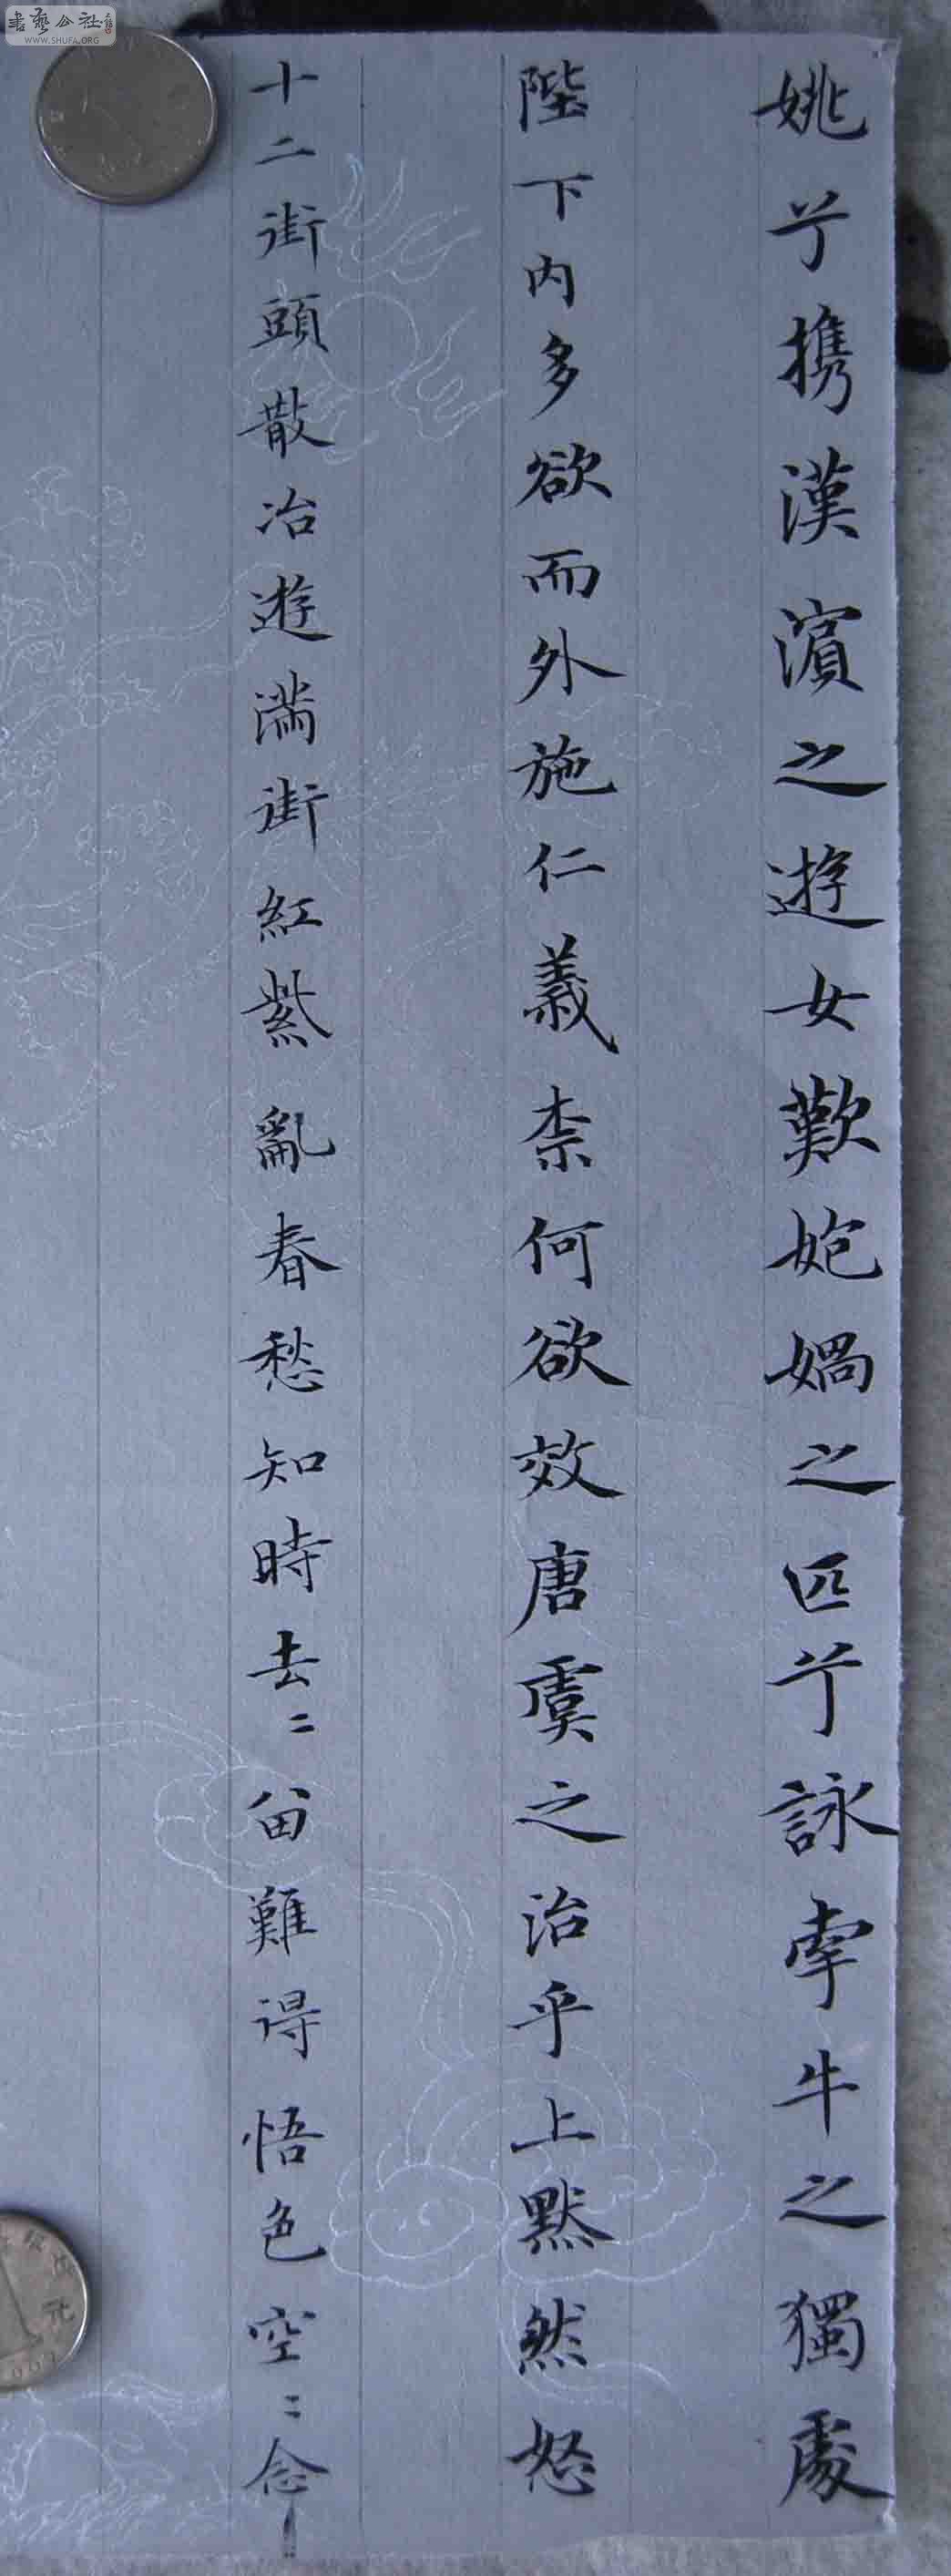 姚兮携漢濱之遊女歎妑媧之匹兮詠牽牛之獨處
陛下内多欲而外施仁義柰何欲效唐虞之治乎上默然怒
十二街頭散冶遊滿街紅紫亂春愁知時去二留難得悟色空二念
書藝公社
WWW.SHUFA.ORG
元
1997